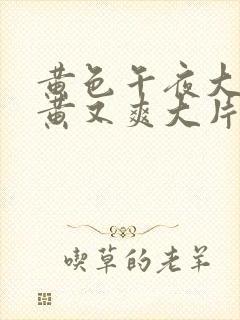 黄色午夜大
黄又爽大片
喫草的老羊